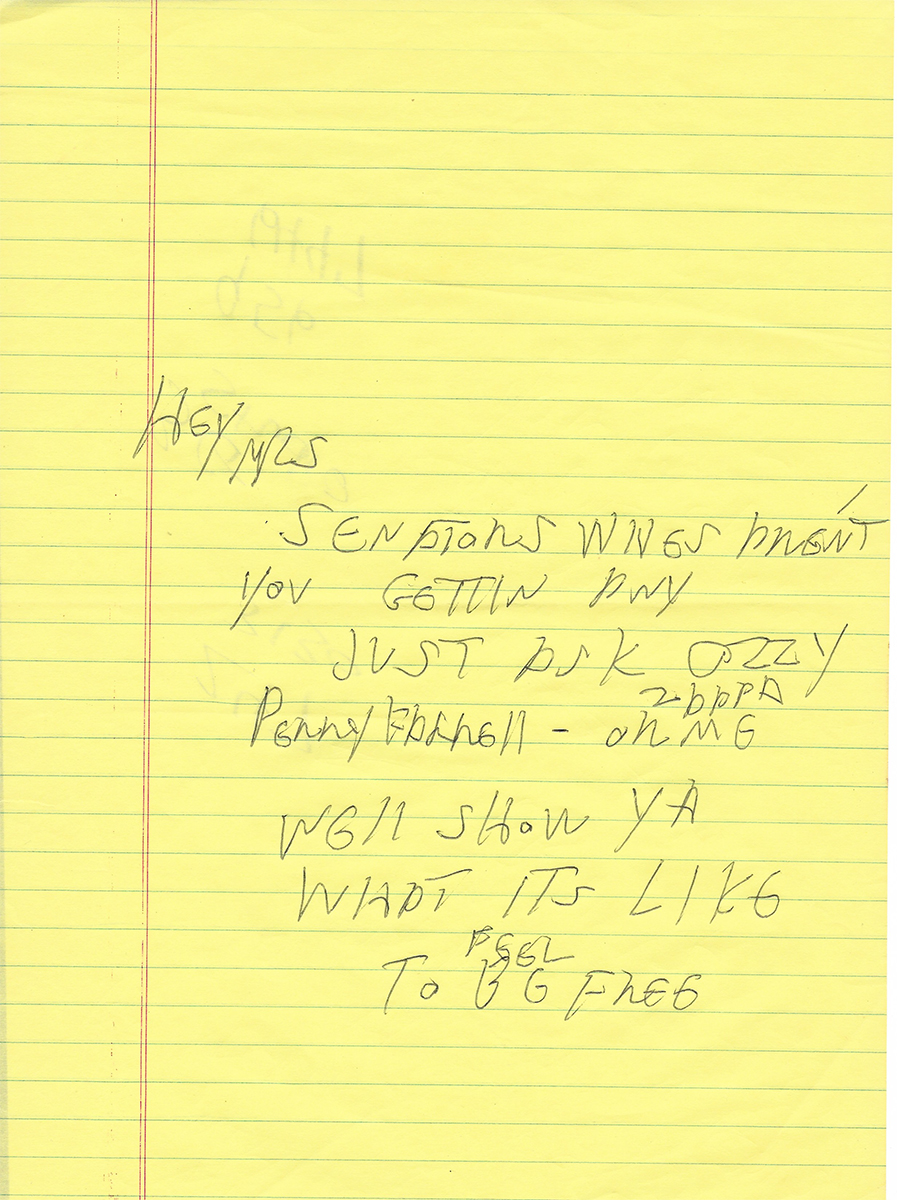 HEY MRS
SENATORS WIVES AREN'T
YOU GETTIN ANY
JUST ASK OZZY
ZAPPA
PERRY FARRELL - OR ME
WE'll SHOW YA
WHAT ITS LIKE
FEEL
TO BE FREE